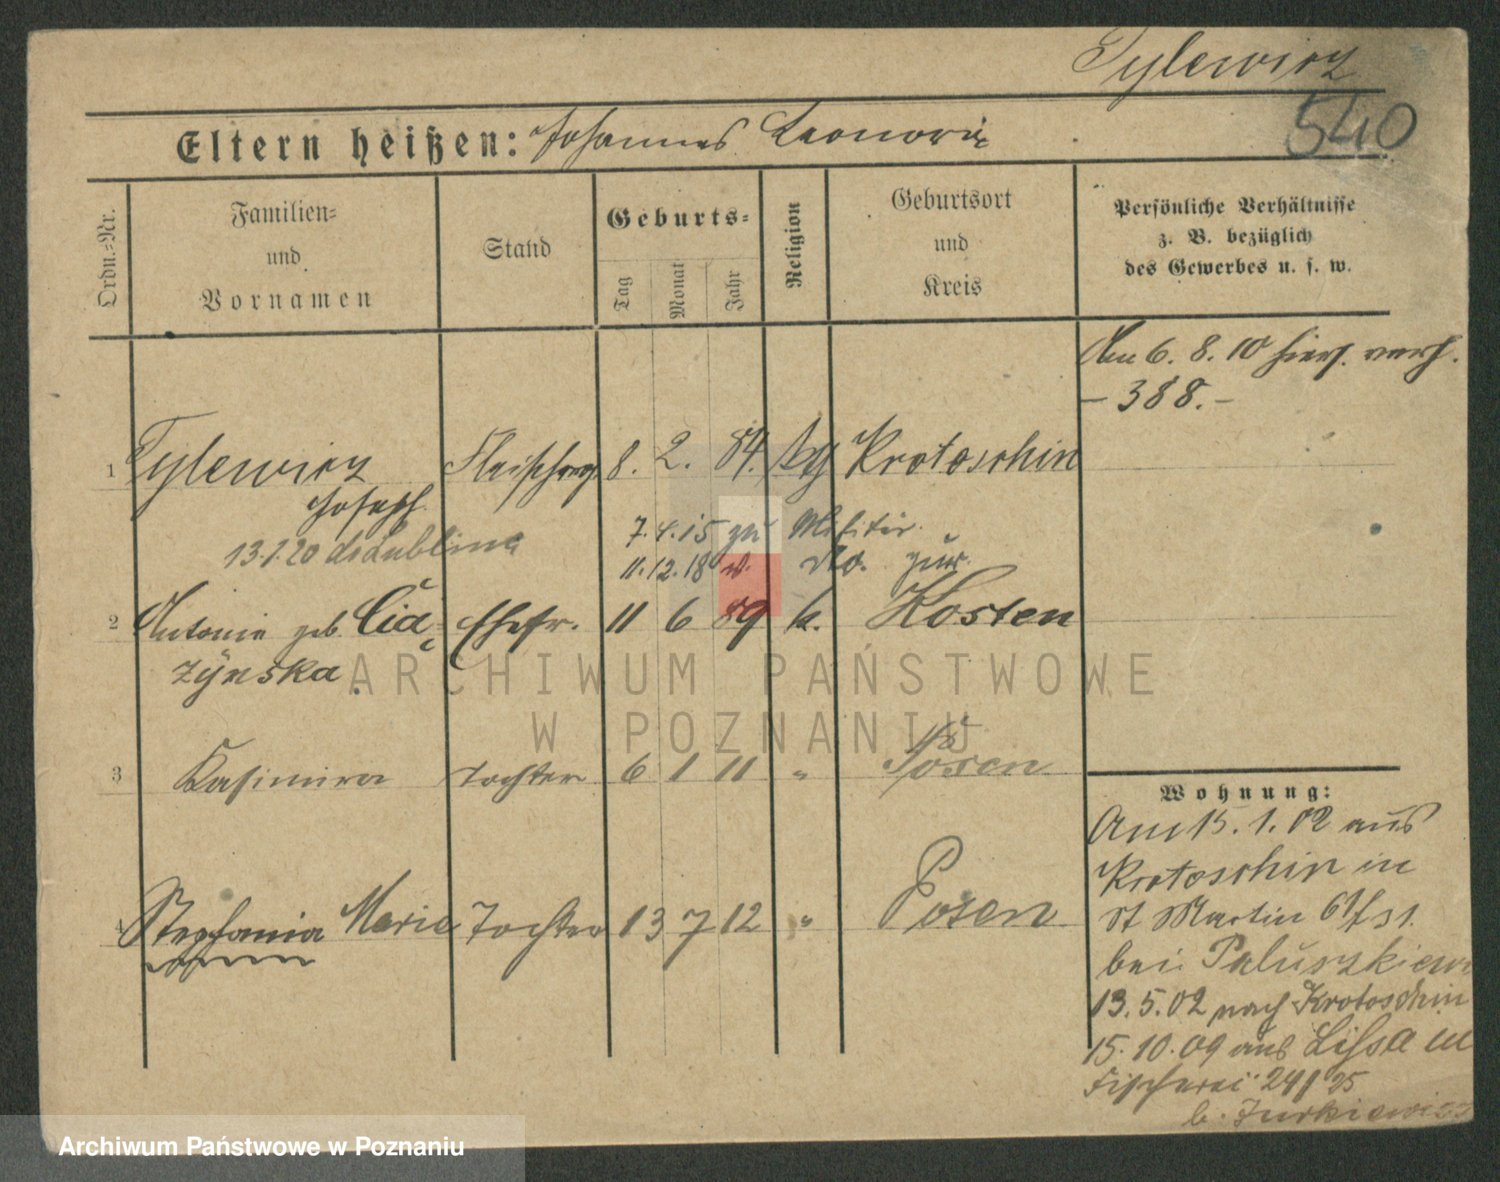 Tylewicz
540
Eltern heißen: Johannes Leonore
Ordn.-Nr.
Familien-
und
Vornamen
Stand
Geburts-
Tag
Monat
Jahr
Religion
Geburtsort
und
Kreis
Persönliche Verhältnisse
z. B. bezüglich
des Gewerbes u. s. w.
Am 6. 8. 10 hier verh.
- 388. -
1 Tylewicz 8. 2. 84. Krotoschin
Joseph
7. 4. 15 zu Militär.
13.1.20 Lubline
11. 12. 18 v. zur.
2 Antonie geb. Cią- Ehefr. 11 6 89 k. Kosten
żynska.
3 Kasimira Tochter 6 1 11 " Posen
4 Stephania Marie Tochter 13 7 12 " Posen
Wohnung:
Am 15. 1. 02 aus
Krotoschin in
St Martin 67/31.
bei Paluszkiewi
13. 5. 02 nach Krotoschin
15. 10. 09 aus Lissa in
Fischerei 24/25
b. Jurkiewicz
ARCHIWUM PAŃSTWOWE
W POZNANIU
Archiwum Państwowe w Poznaniu